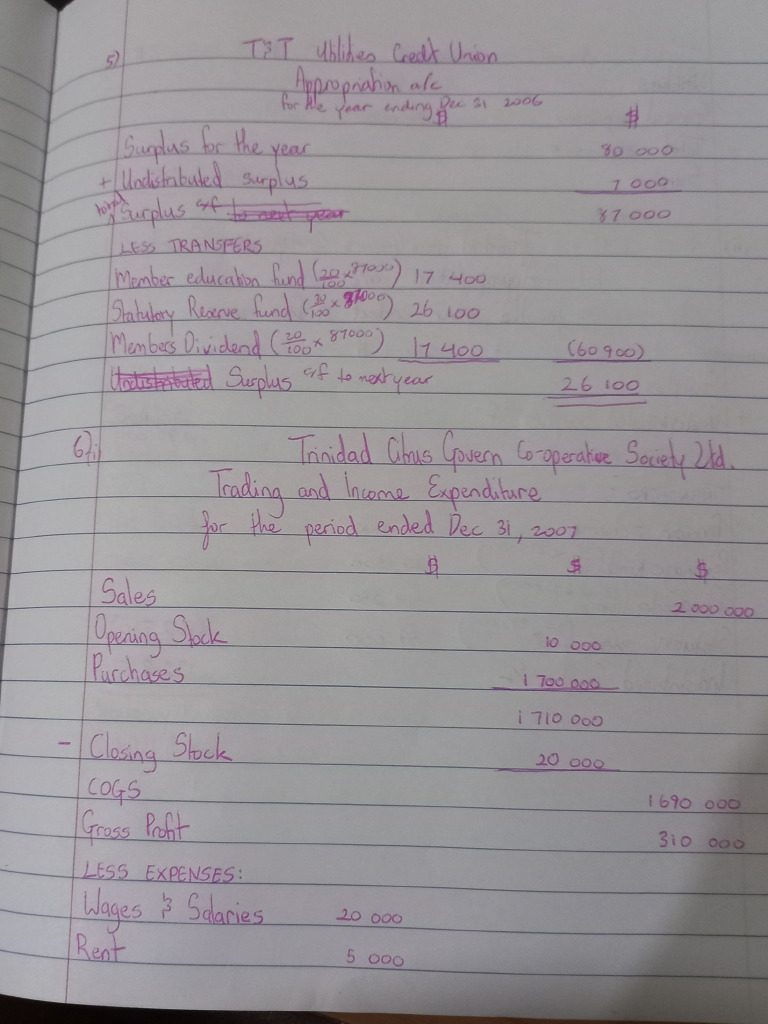 5) T&T Utilities Credit Union
Appropriation a/c
for the year ending Dec 31 2006
$ $
Surplus for the year 80 000
+ Undistributed surplus 7 000
Surplus c/f to next year 87 000
LESS TRANSFERS
Member education fund (20/100 x 87000) 17 400
Statutory Reserve Fund (30/100 x 87000) 26 100
Members Dividend (20/100 x 87000) 17 400 (60 900)
Undistributed Surplus c/f to next year 26 100
6) i) Trinidad Citrus Govern Co-operative Society Ltd.
Trading and Income Expenditure
for the period ended Dec 31, 2007
$ $ $
Sales 2 000 000
Opening Stock 10 000
Purchases 1 700 000
1 710 000
- Closing Stock 20 000
COGS 1 690 000
Gross Profit 310 000
LESS EXPENSES:
Wages & Salaries 20 000
Rent 5 000